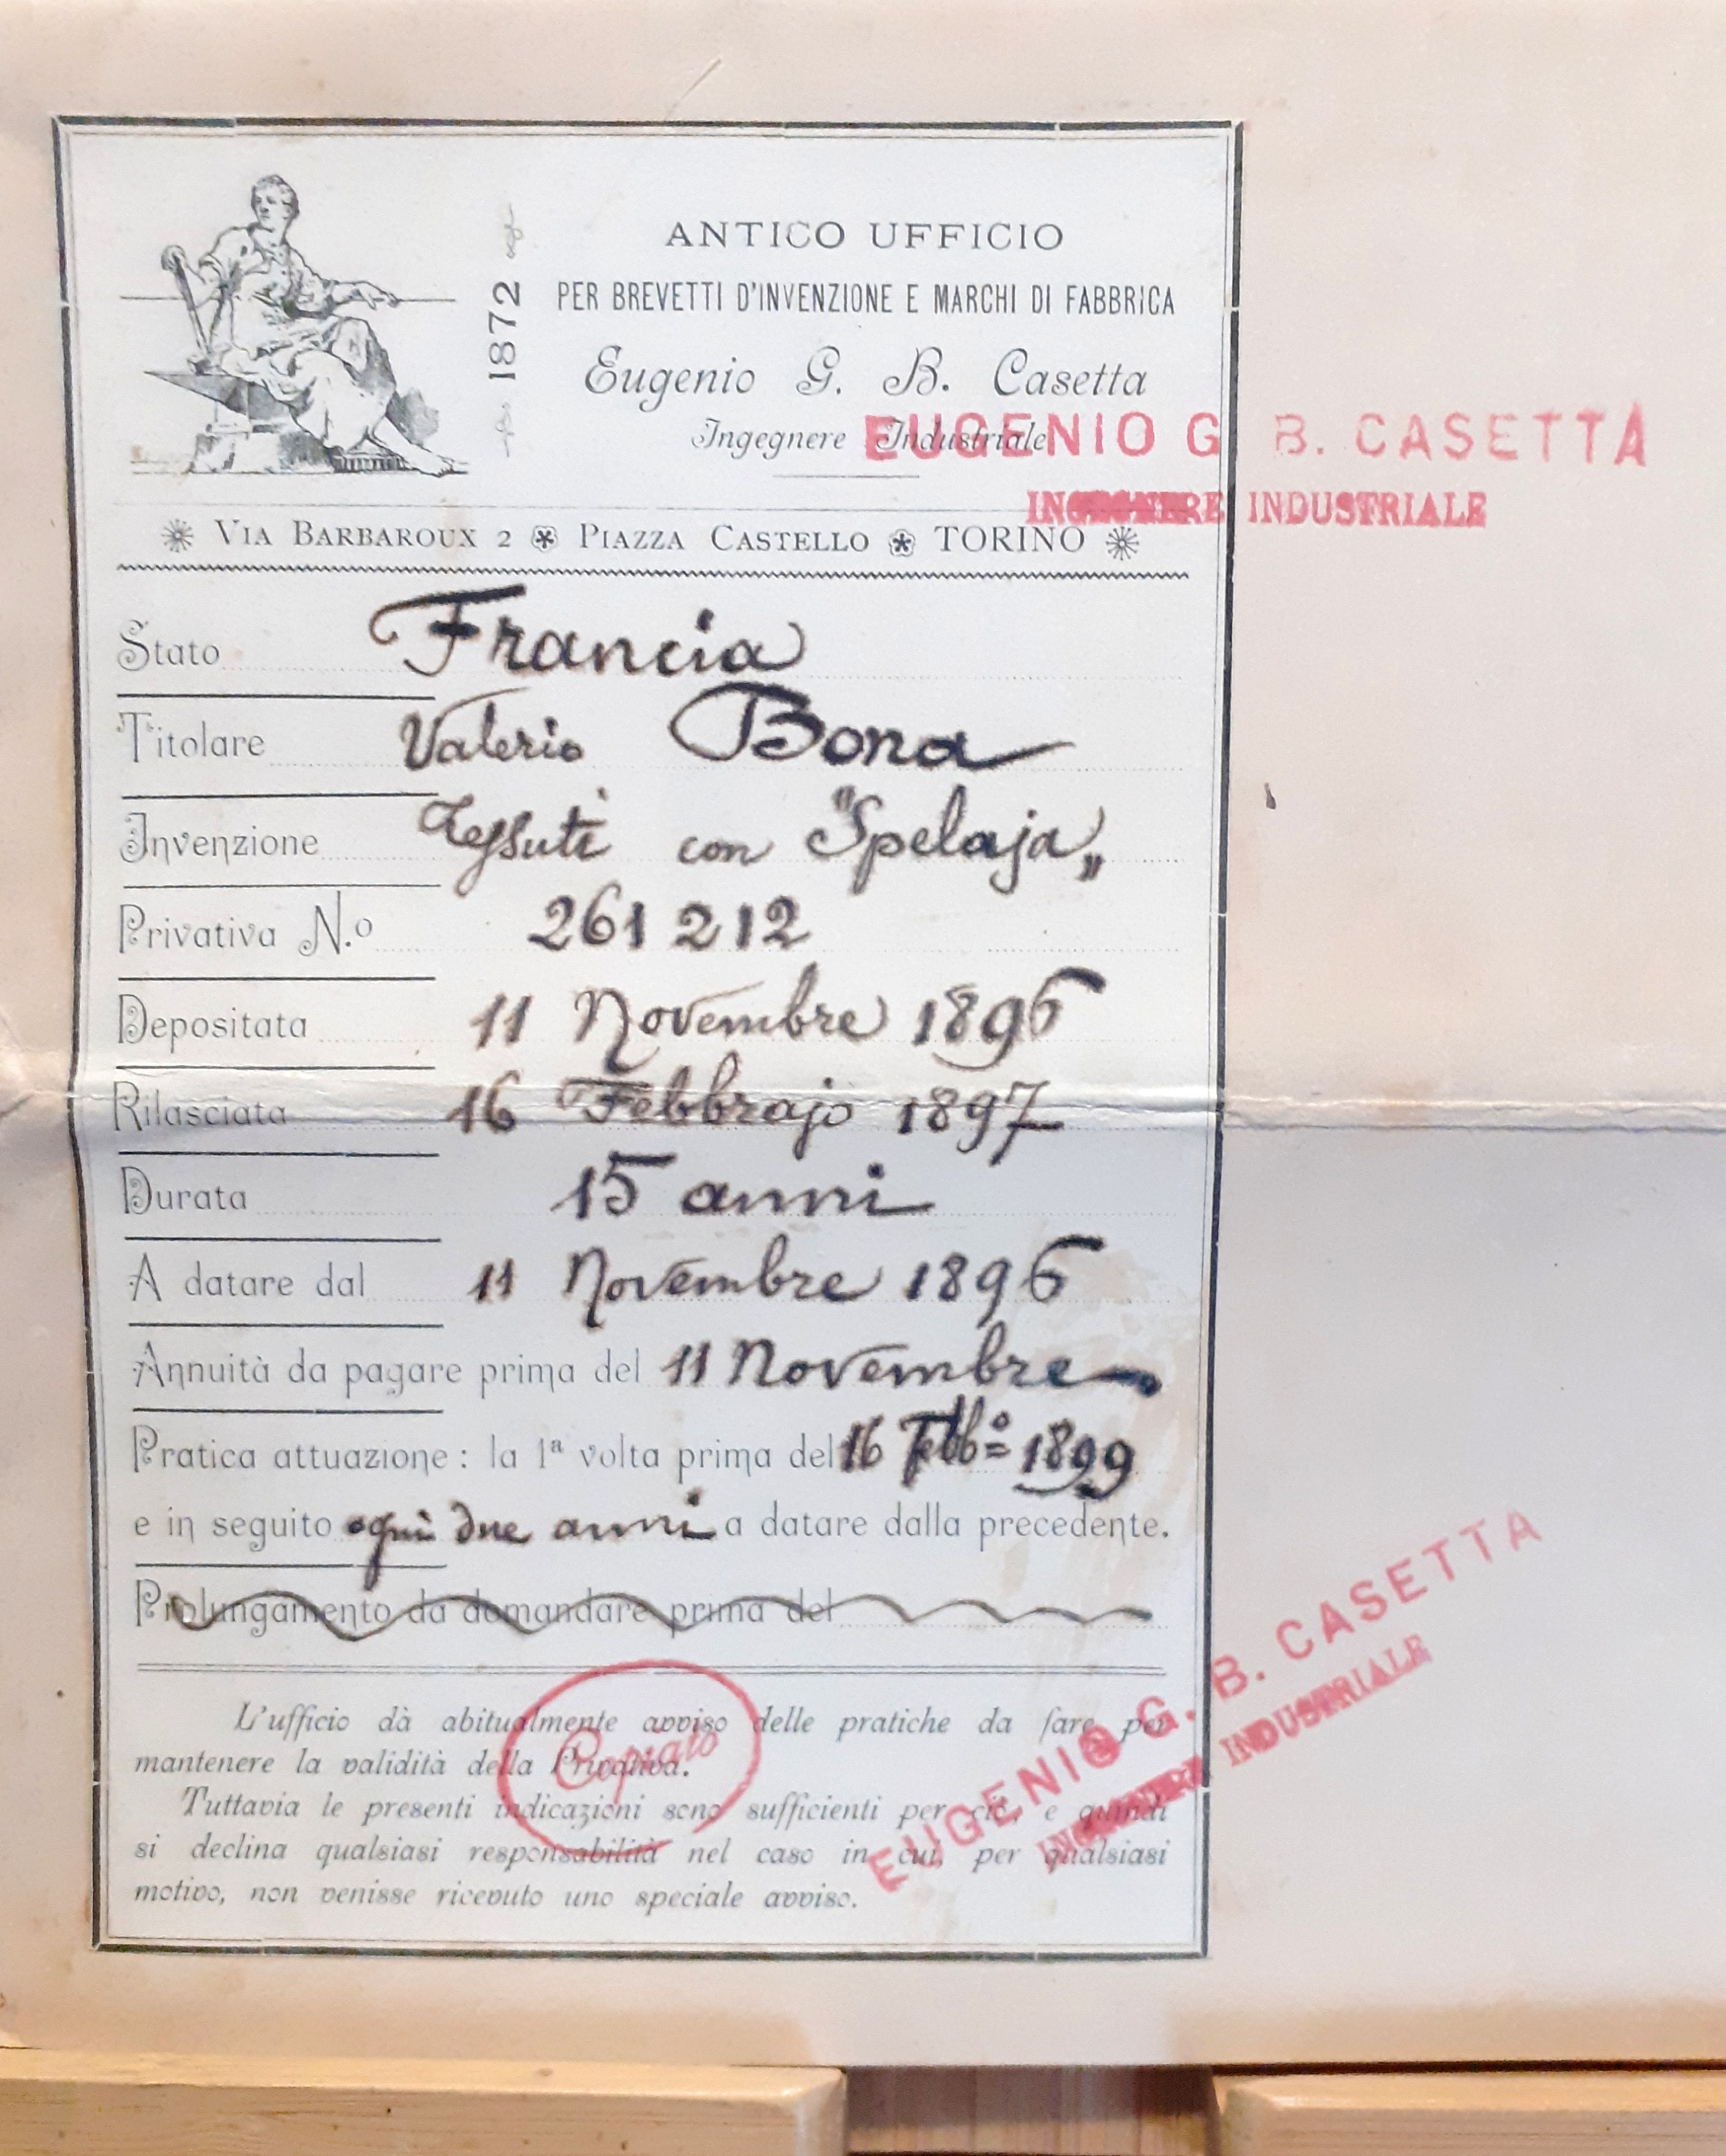 1872
ANTICO UFFICIO
PER BREVETTI D'INVENZIONE E MARCHI DI FABBRICA
Eugenio G. B. Casetta
Ingegnere Industriale
EUGENIO G. B. CASETTA
INGEGNERE INDUSTRIALE
VIA BARBAROUX 2 PIAZZA CASTELLO TORINO
Stato Francia
Titolare Valerio Bona
Invenzione Tessuti con "Spelaja„
Privativa N.o 261212
Depositata 11 Novembre 1896
Rilasciata 16 Febbrajo 1897
Durata 15 anni
A datare dal 11 Novembre 1896
Annuità da pagare prima del 11 Novembre
Pratica attuazione: la 1ª volta prima del 16 Febb.º 1899
e in seguito ogni due anni a datare dalla precedente.
Prolungamento da domandare prima del
L'ufficio dà abitualmente avviso delle pratiche da fare per
mantenere la validità della Privativa.
Copiato
Tuttavia le presenti indicazioni sono sufficienti per ciò, e quindi
si declina qualsiasi responsabilità nel caso in cui, per qualsiasi
motivo, non venisse ricevuto uno speciale avviso.
EUGENIO G. B. CASETTA
INGEGNERE INDUSTRIALE